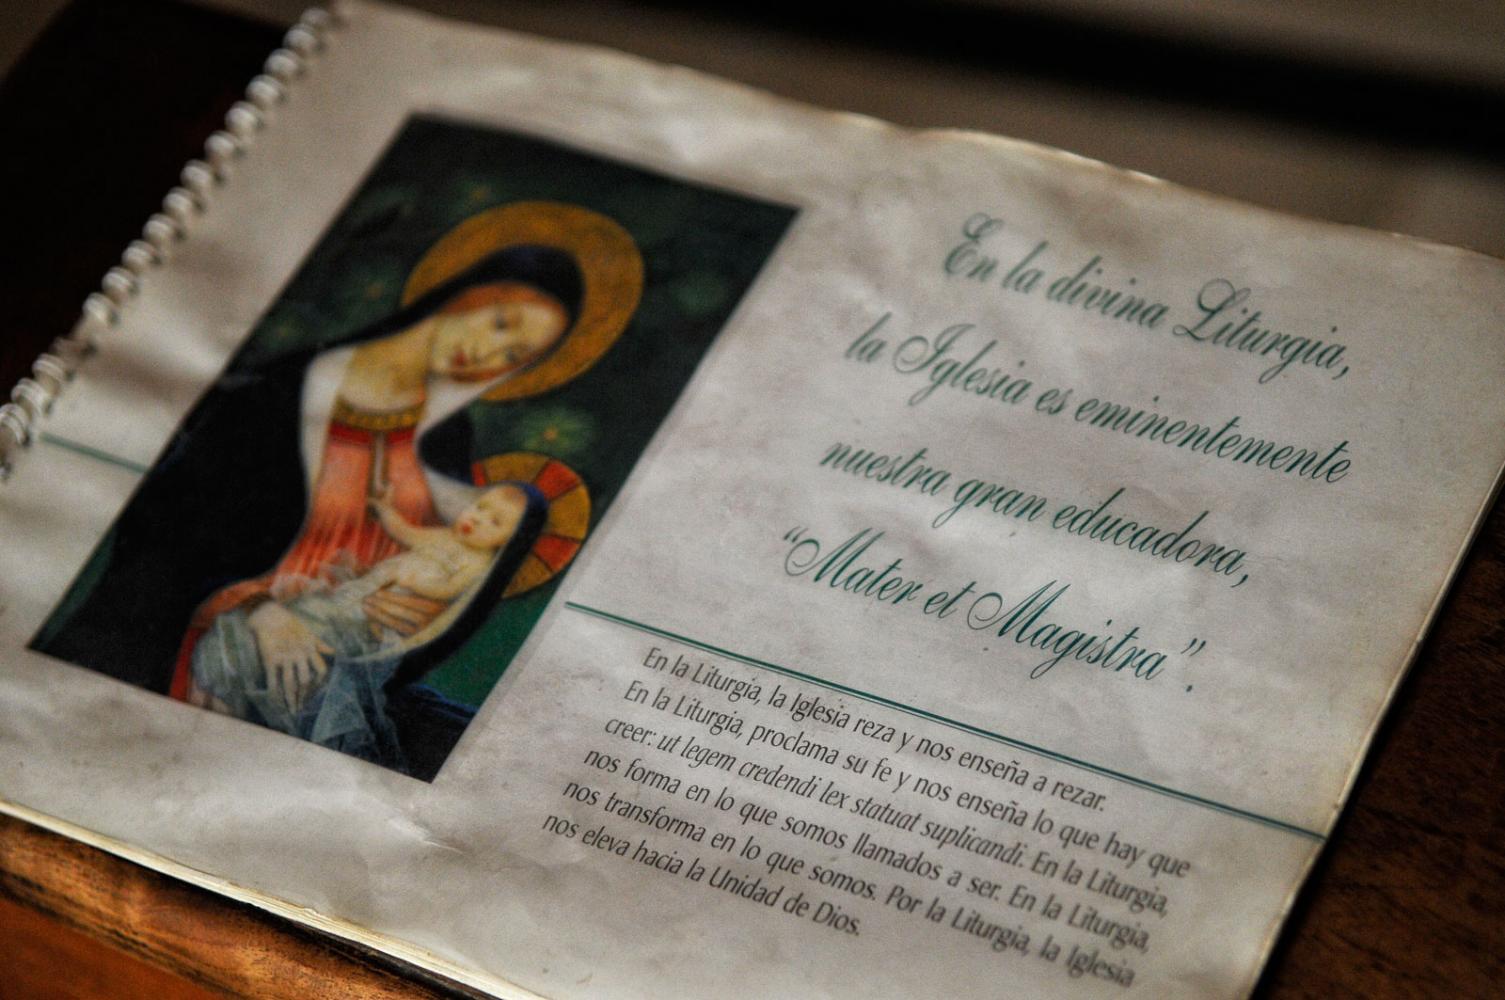 En la divina Liturgia,
la Iglesia es eminentemente
nuestra gran educadora,
“Mater et Magistra”.
En la Liturgia, la Iglesia reza y nos enseña a rezar.
En la Liturgia, proclama su fe y nos enseña lo que hay que
creer: ut legem credendi lex statuat suplicandi. En la Liturgia,
nos forma en lo que somos llamados a ser. En la Liturgia,
nos transforma en lo que somos. Por la Liturgia, la Iglesia
nos eleva hacia la Unidad de Dios.